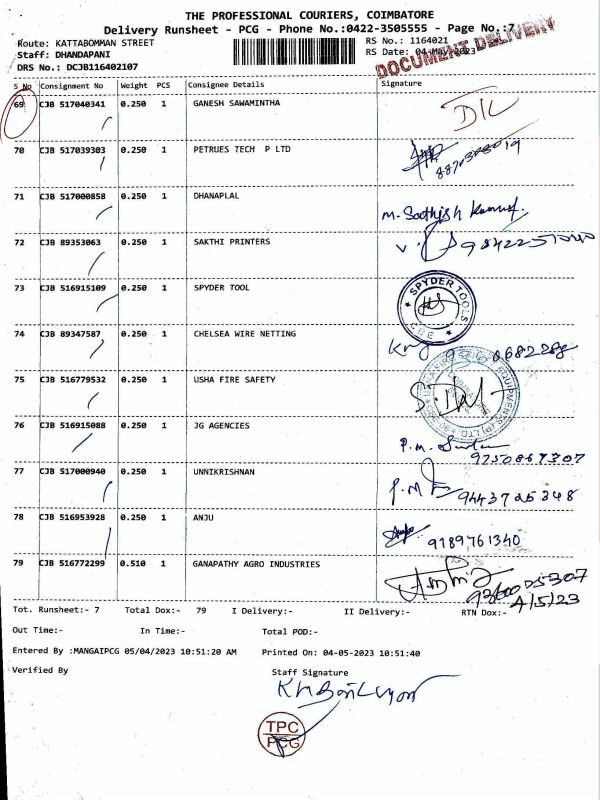 THE PROFESSIONAL COURIERS, COIMBATORE
Delivery Runsheet - PCG - Phone No.:0422-3505555 - Page No.:7
Route: KATTABOMMAN STREET
RS No.: 1164021
Staff: DHANDAPANI
RS Date: 04-May-2023
DRS No.: DCJB116402107
DOCUMENT DELIVERY
S No Consignment No Weight PCS Consignee Details Signature
69 CJB 517040341 0.250 1 GANESH SAWAMINTHA
70 CJB 517039303 0.250 1 PETRUES TECH P LTD
71 CJB 517000858 0.250 1 DHANAPLAL
M. Sathish Kumar.
72 CJB 89353063 0.250 1 SAKTHI PRINTERS
73 CJB 516915109 0.250 1 SPYDER TOOL
SPYDER TOOLS
CBE
74 CJB 89347587 0.250 1 CHELSEA WIRE NETTING
75 CJB 516779532 0.250 1 USHA FIRE SAFETY
76 CJB 516915088 0.250 1 JG AGENCIES
9750867307
77 CJB 517000940 0.250 1 UNNIKRISHNAN
9443725348
78 CJB 516953928 0.250 1 ANJU
9189761340
79 CJB 516772299 0.510 1 GANAPATHY AGRO INDUSTRIES
4/5/23
Tot. Runsheet:- 7 Total Dox:- 79 I Delivery:- II Delivery:- RTN Dox:-
Out Time:- In Time:- Total POD:-
Entered By :MANGAIPCG 05/04/2023 10:51:20 AM Printed On: 04-05-2023 10:51:40
Verified By Staff Signature
TPC
PCG